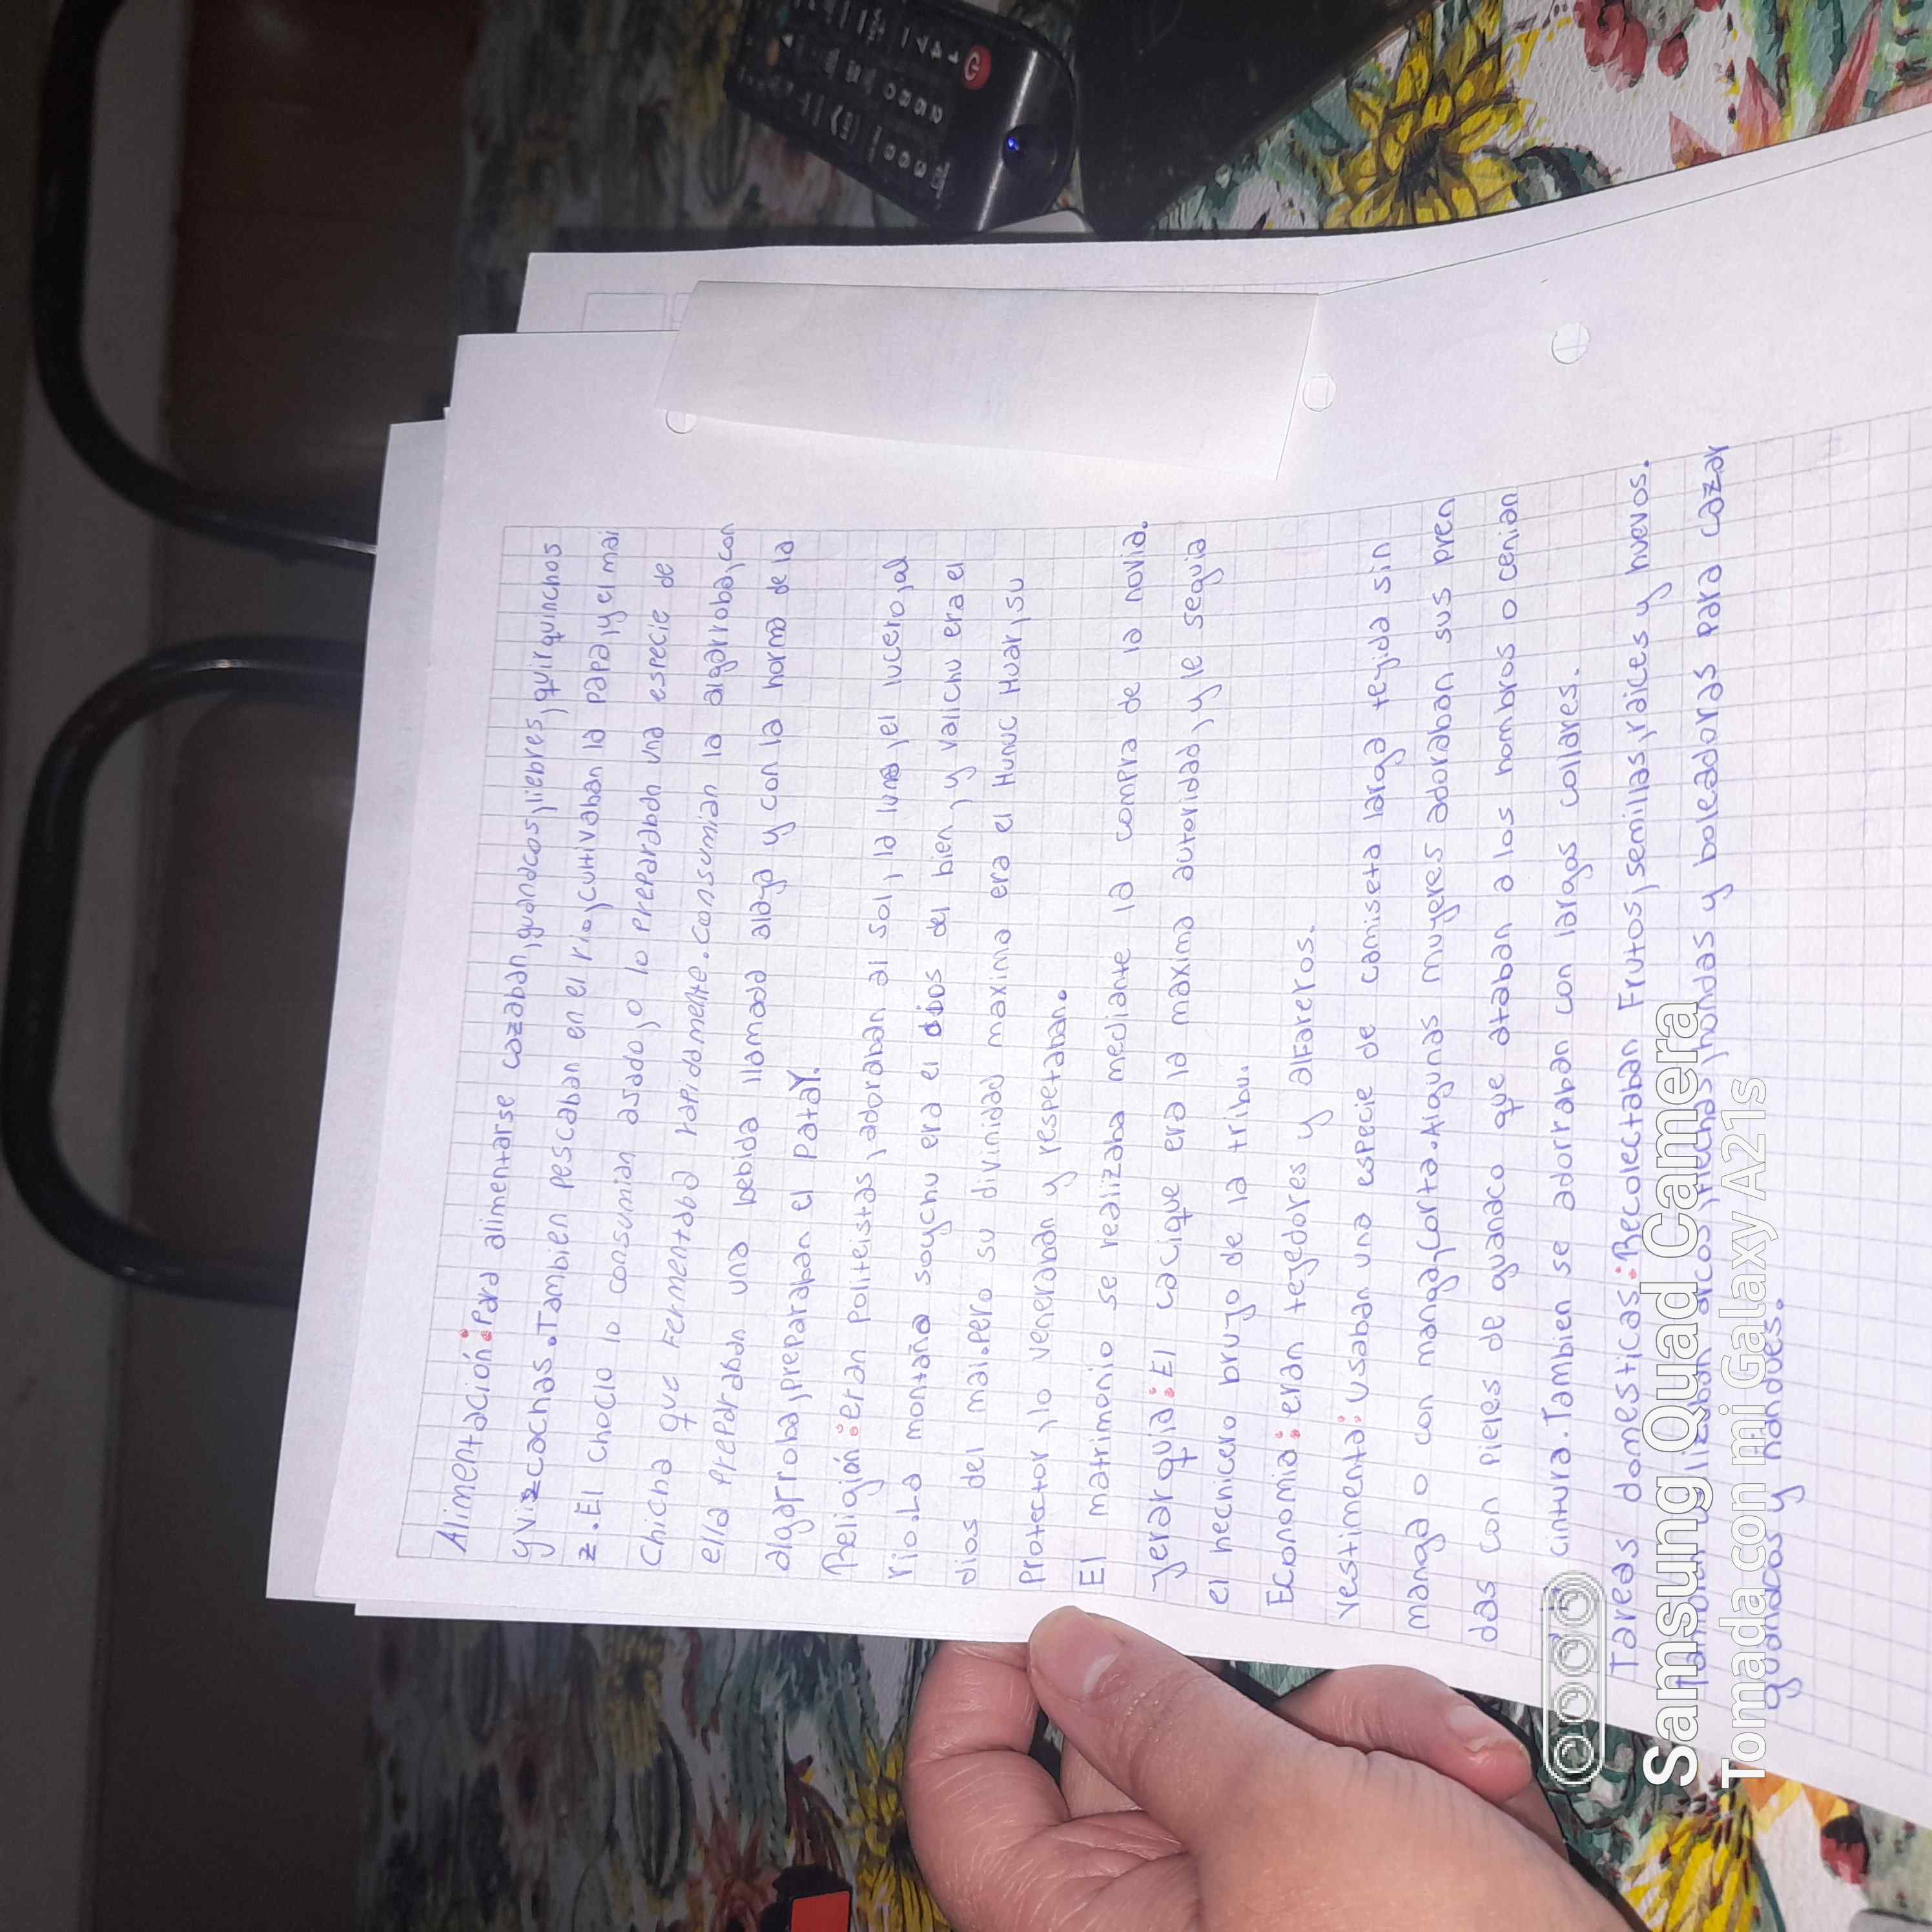 Alimentación: Para alimentarse cazaban, guanacos, liebres, quirquinchos
y vizcachas. Tambien pescaban en el rio, cultivaban la papa, y el mai
z. El choclo lo consumian asado, o lo preparaban una especie de
Chicha que Fermentaba rapidamente. Consumian la algarroba, con
ella preparaban una bebida llamada alaya y con la harna de la
algarroba, preparaban el patay.
Religión: eran politeistas, adoraban al sol, la luna, el lucero, al
rio. La montaña soychu era el dios del bien, y valichu era el
dios del mal. Pero su divinidad maxima era el Hunuc Huar, su
Protector, lo veneraban y respetaban.
El matrimonio se realizaba mediante la compra de la novia.
Jerarquia: El cacique era la maxima autoridad, y le seguia
el hechicero brujo de la tribu.
Economia: eran tejedores y alfareros.
Vestimenta: Usaban una especie de camiseta larga tejida sin
manga o con manga, corta. Algunas mujeres adoraban sus pren
das con pieles de guanaco que ataban a los hombros o cenian
cintura. Tambien se adorraban con largos collares.
Tareas domesticas: Recolectaban Frutos, semillas, raices y huevos.
arcos, Flechas, hondas y boleadoras para cazar
guanacos y ñandues.
Samsung Quad Camera
Tomada con mi Galaxy A21s